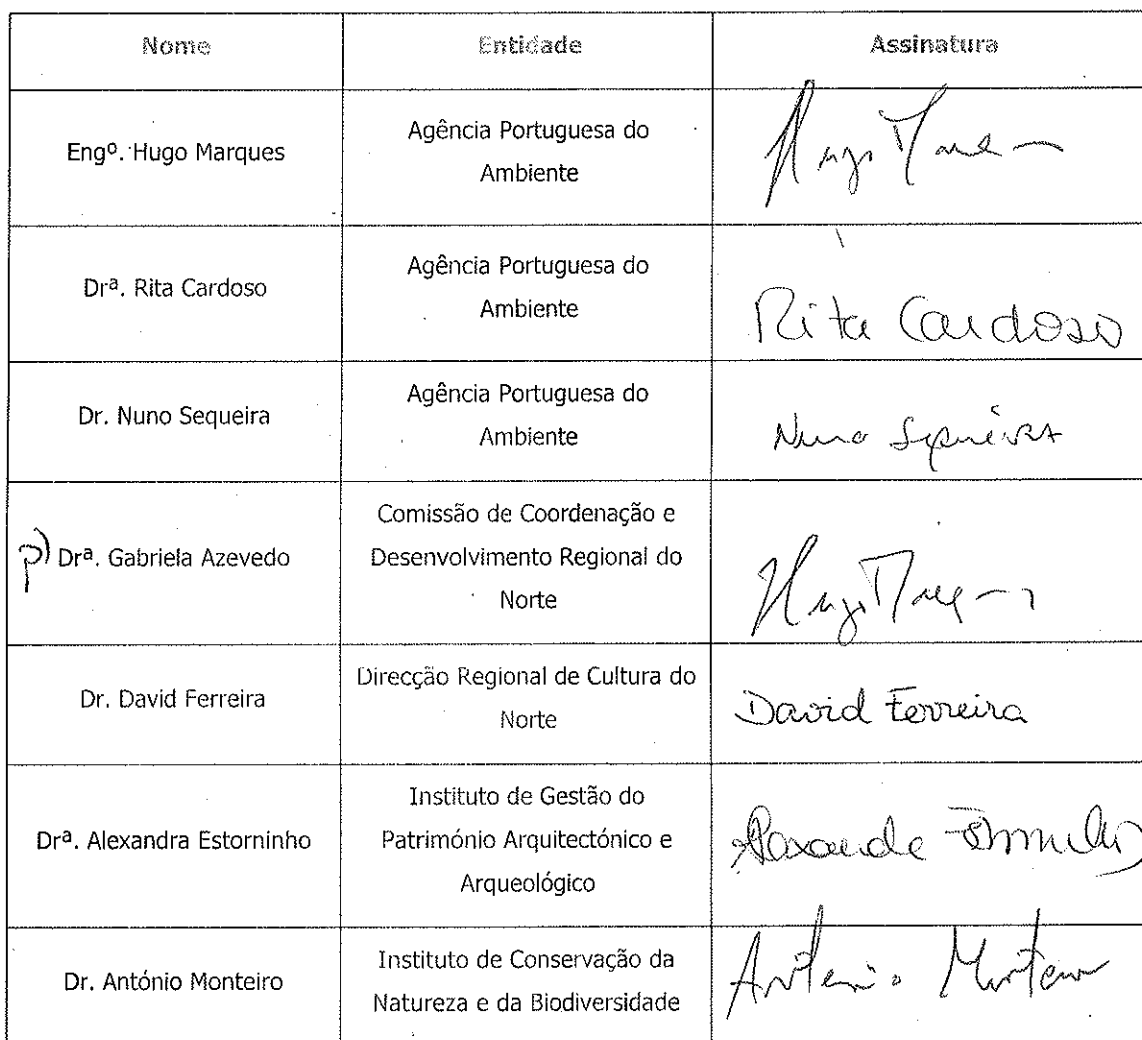 Nome Entidade Assinatura
Engº. Hugo Marques
Agência Portuguesa do
Ambiente
Hugo Mar
Drª. Rita Cardoso
Agência Portuguesa do
Ambiente
Rita Cardoso
Dr. Nuno Sequeira
Agência Portuguesa do
Ambiente
Nuno Sequeira
p) Drª. Gabriela Azevedo
Comissão de Coordenação e
Desenvolvimento Regional do
Norte
Hugo Mar
Dr. David Ferreira
Direcção Regional de Cultura do
Norte
David Ferreira
Drª. Alexandra Estorninho
Instituto de Gestão do
Património Arquitectónico e
Arqueológico
Dr. António Monteiro
Instituto de Conservação da
Natureza e da Biodiversidade
António Monteiro